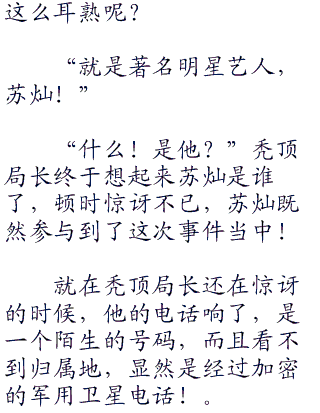 这么耳熟呢？
“就是著名明星艺人，
苏灿！”
“什么！是他？”秃顶
局长终于想起来苏灿是谁
了，顿时惊讶不已，苏灿既
然参与到了这次事件当中！
就在秃顶局长还在惊讶
的时候，他的电话响了，是
一个陌生的号码，而且看不
到归属地，显然是经过加密
的军用卫星电话！。